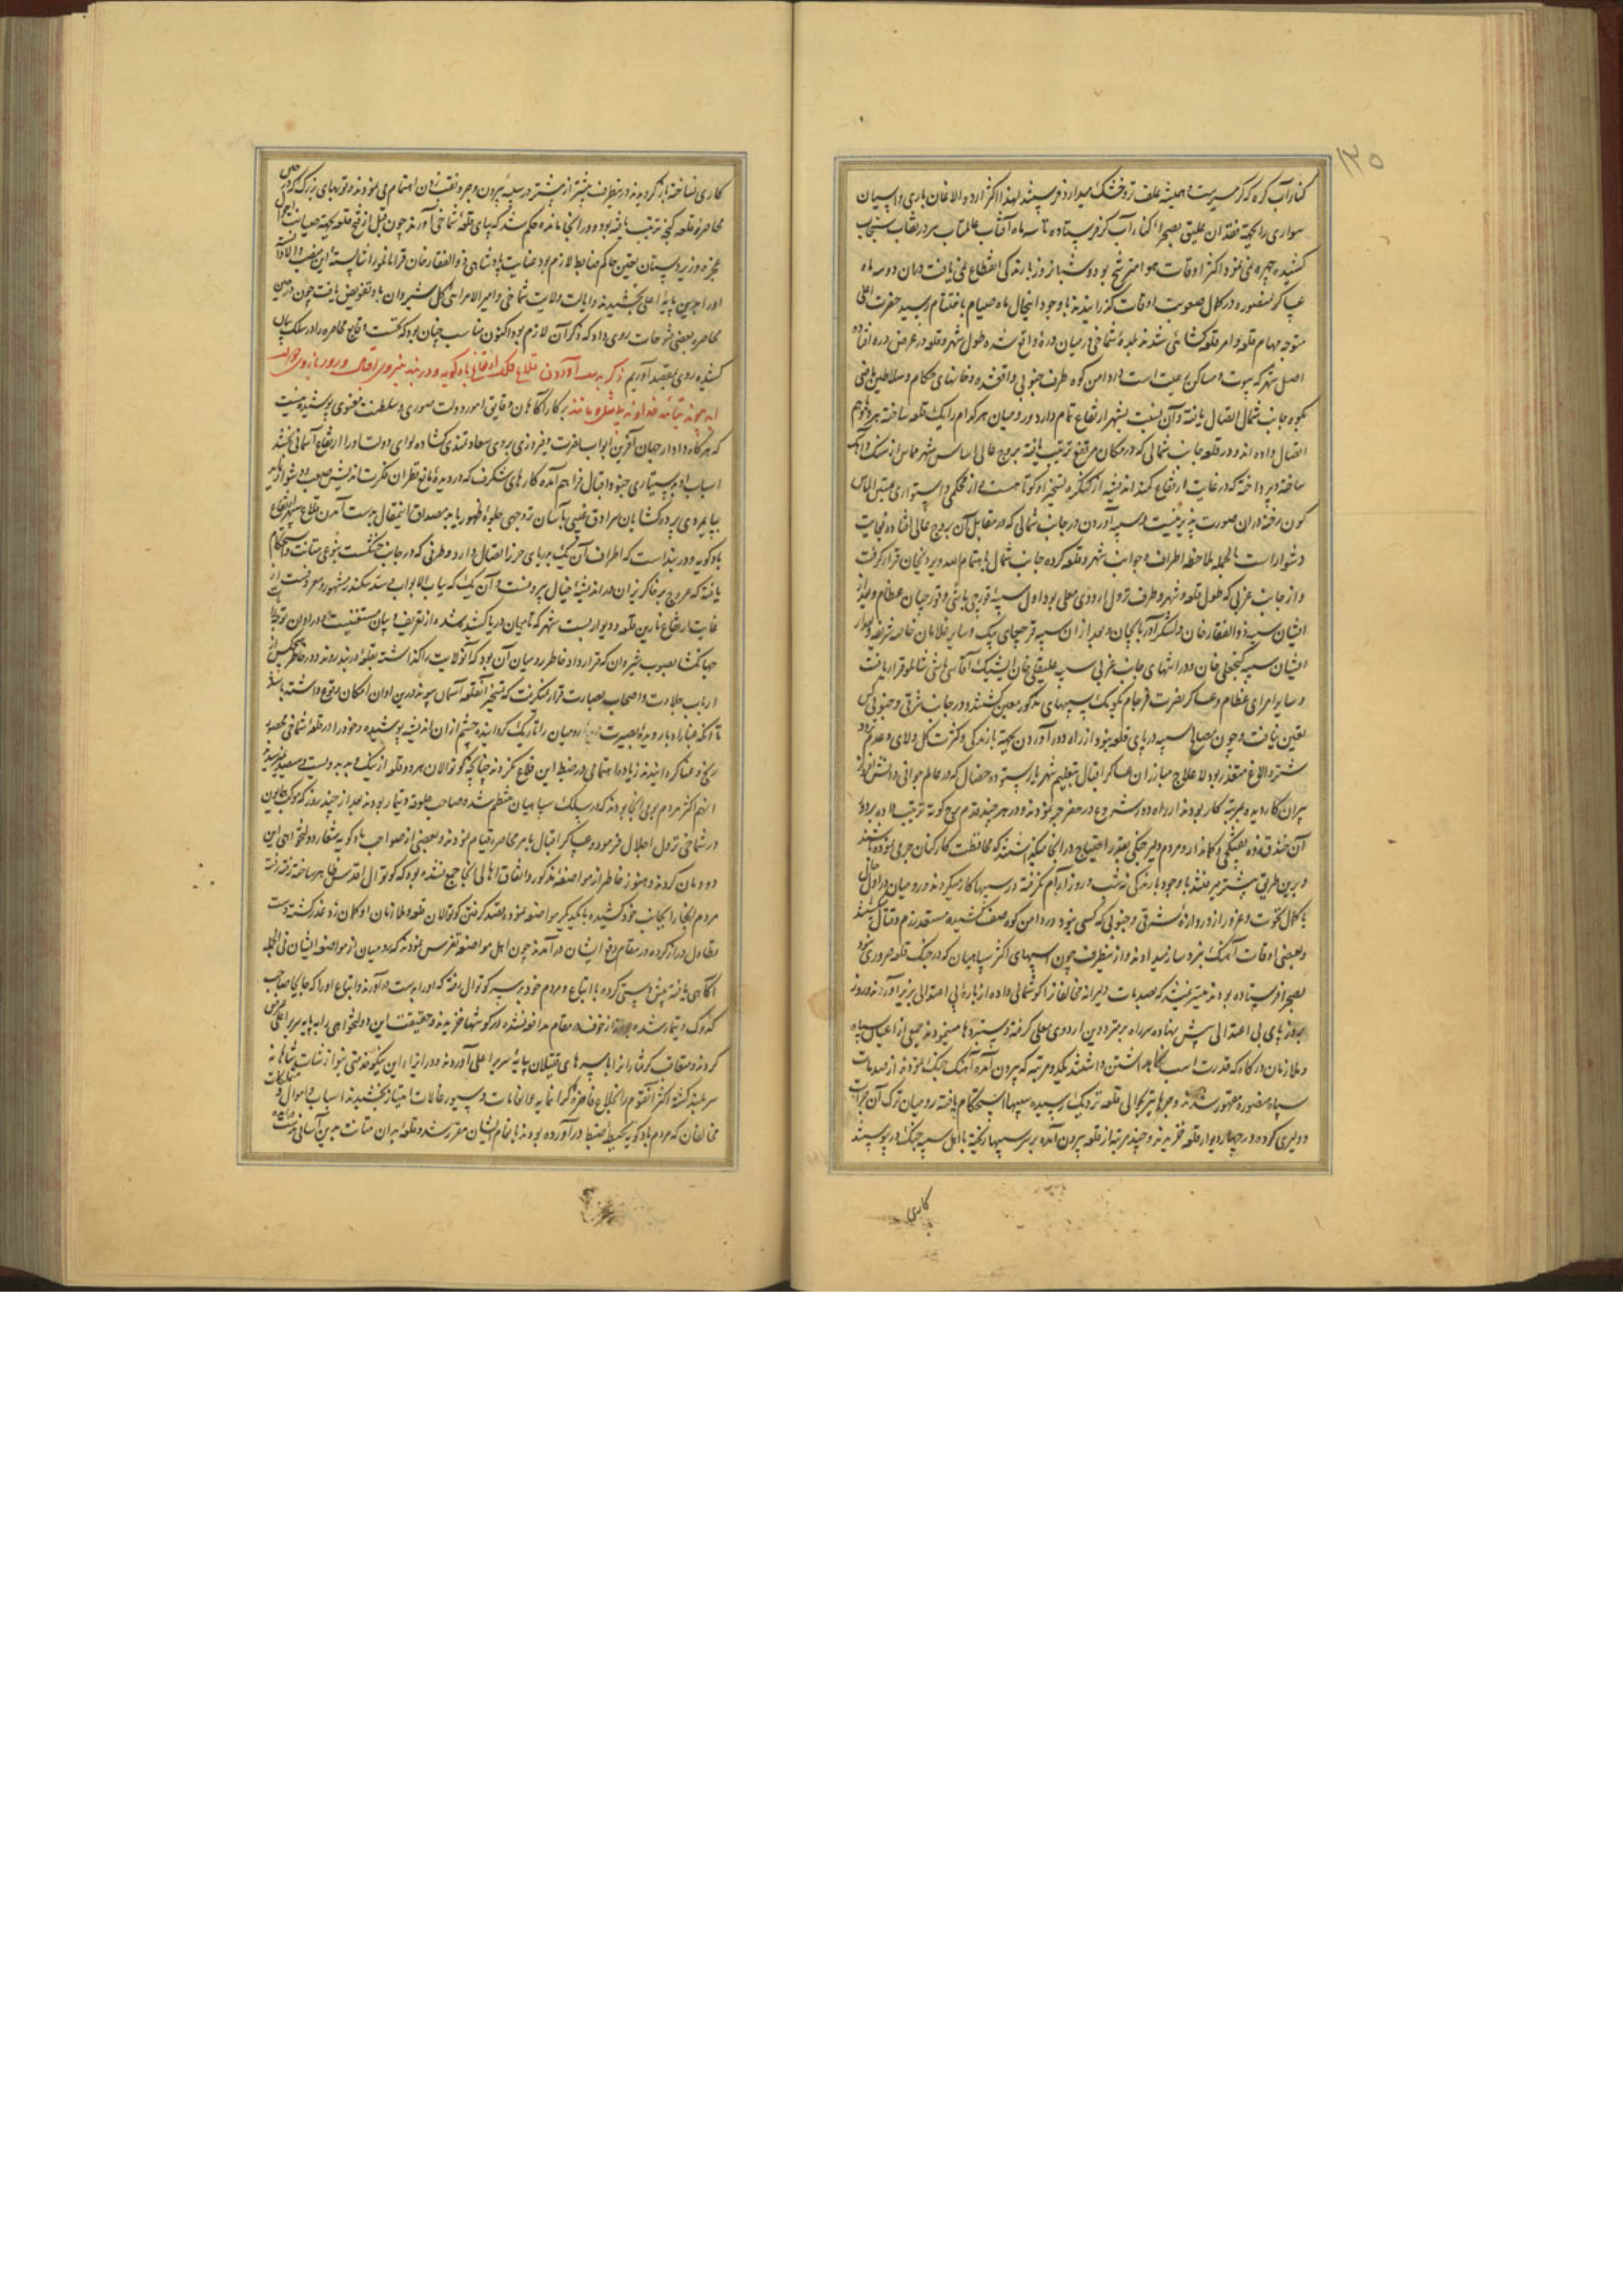 ۱۳۵
کنار آب کر که گرمسیرست و همیشه علف تر و خشک میدارد فرستند لهذا اکثر اردو و الاغان باری و اسپان
سواری را بجهة فقدان علیق بصحرا کنار آب کر فرستاده تا سه ماه آفتاب عالمتاب سر در نقاب سحاب
کشیده چهره نمی نمود اکثر اوقات هوا مترشح بود و شبانروز بارندگی انقطاع نمی یافت در آن دو سه ماه
عساکر منصوره در کمال صعوبت اوقات گذرانیدند با وجود اینحال ماه صیام باختتام رسید حضرت اعلی
متوجه مهام قلعه و امر قلعه کشائی شدند بلدهٔ شماخی در میان دره واقع شده طول شهر و قلعه در عرض دره افتاده
اصل شهر که بیوت و مساکن رعیت است در دامن کوه طرف جنوبی واقعشده و خانهای حکام و سلاطین ماضی
بکوه جانب شمال اتصال یافته و آن نسبت بشهر ارتفاع تمام دارد و رومیان هر کدام را یک قلعه ساخته هر دو بهم
اتصال داده اند و در قلعه جانب شمالی که در مکان مرتفع ترتیب یافته بروج عالی اساس
ساخته و پرداخته که در غایت ارتفاع کمند اندیشه از کنگره تسخیر او کوتاهست و از محکمی و استواری
کون رخنه در آن صورت پذیر نیست و سیبه آوردن در جانب شمالی که در مقابل آن بروج عالی افتاده بغایت
دشوار است بالجمله ملاحظه اطراف و جوانب شهر و قلعه کرده جانب شمال باهتمام الله ویردیخان قرار گرفت
و از جانب غربی که طول قلعه و شهر و طرف نزول اردوی معلی بود اول سیبه قورچی باشی و قورچیان عظام و بعد از
ایشان سیبه ذوالفقار خان و لشکر آذربایجان و بعد از آن سیبه قرچقای بیک و سایر غلامان خاصه شریفه و بعد از
ایشان سیبه گنجعلی خان و در انتهای جانب غربی سیبه علیقلی خان ایشیک آقاسی باشی شاملو قرار یافت
و سایر امرای عظام و عساکر نصرت فرجام بکومک سیبهای مذکور معین گشتند و در جانب شرقی و جنوبی کس
تعین نیافت و چون مصالح سیبه در پای قلعه نبود و از راه دور آوردن بجهة بارندگی و کثرت گل و لای و عدم تردد
شتر و الاغ متعذر بود لاعلاج مبارزان عساکر اقبال بتعلیم شهریار ستوده خصال که در عالم جوانی دانش آموز
پیران کار دیده و تجربه کار بودند از راه دور شروع در حفر جر نمودند و در هر چند قدم مورچ گونه ترتیب داده بر دو
آن خندق زده تفنگچی و کماندار و مردم دلیر جنگی بقدر احتیاج در آنجا میگذاشتند که محافظت کارکنان جر می نموده باشند
و برین طریق پیشتر میرفتند با وجود بارندگی نه شب و روز آرام نگرفته در سیبها کار میکردند و رومیان در اول حال
با کمال نخوت و غرور از دروازهٔ شرقی و جنوبی که کسی نبود در دامن کوه صف کشیده مستعد رزم و قتال میشدند
و بعضی اوقات آهنگ نبرد ساز میدادند و از اینطرف چون اسبهای اکثر سپاهیان که در جنگ قلعه ضروری نبود
بصحرا فرستاده بودند میسر نمیشد که بصدمات دلیرانه مخالفان را گوشمالی داده از بارهٔ بی اعتدالی بزیر آورند و روز
بروز پای بی اعتدالی پیش نهاده سر راه بر مترددین اردوی معلی گرفته دستبردها مینمودند جمعی از اعیان سپاه
و ملازمان درگاه که قدرت اسب نگاهداشتن داشتند یکدو مرتبه که بیرون آمده آهنگ جنگ نمودند از صدمات
سپاه منصوره مقهور شدند و جرها بحوالی قلعه نزدیک رسیده سیبها استحکام یافته رومیان ترک آن جرأت
و دلیری کرده در چهار دیوار قلعه خزیدند و چند مرتبه از قلعه بیرون آمده بر سر سیبها ریخته با اهل سیبه جنگ در پیوستند
کاری
کاری نساخته باز گردیدند و از اینطرف بیشتر از پیشتر در سیبه بیرون و جر و نقب زدن اهتمام می نمودند و توپهای بزرگ که در حین
محاصرهٔ قلعه گنجه ترتیب یافته بود و در آنجا مانده حکم شد که بپای قلعهٔ شماخی آورند چون قبل از فتح قلعه بجهة صیانت احوال
عجزه و زیردستان تعین حاکم ضابط لازم بود عنایت پادشاهی ذوالفقار خان قرامانلو را شایسته این منصب والا دانسته
او را بدین پایهٔ اعلی بخشیدند و ایالت ولایت شماخی و امیر الامرائی کل شیروان باو تفویض یافت چون در حین
محاصره بعضی فتوحات روی داد که ذکر آن لازم بود و اکنون مناسب چنان بود که نخست وقایع محاصره را در سلک بیان
کشیده روی بمقصد آوریم ذکر بدست آوردن قلاع فلک ارتفاع باد کوبه و دربند بنیروی اقبال و زور بازوی دولت
بر کار آگاهان دقایق امور دولت صوری و سلطنت معنوی پوشیده نیست
که هرگاه دادار جهان آفرین ابواب نصرت و فیروزی بروی سعادتمندی گشاده لوای دولت او را ارتفاع آسمانی بخشد
اسباب او بدستیاری جنود اقبال فراهم آمده کارهای شگرف که در دیدهٔ بالغ نظران فکرت اندیش صعب و دشوار نماید
بپایمردی پرده گشایان سرادق غیبی بآسان تر وجهی جلوهٔ ظهور یابد مصداق اینمقال بدست آمدن قلاع سپهر ارتفاع
باد کوبه و دربند است که اطراف آن یک بدریای خزر اتصال دارد و طرفی که در جانب خشکیست بنوعی متانت و استحکام
یافته که عروج بر خاکریز آن در اندیشهٔ خیال بیرونست و آن یک که بباب الابواب و سد سکندر مشهور و معروفست از
غایت ارتفاع نارین قلعه و دو دیوار بست شهر که تا میان دریا کشیده شده از تعریف و بیان مستغنیست و در اوان توجه رایات
جهانگشا بصوب شیروان که قرارداد خاطر رومیان آن بود که آنولایت را گذاشته بقلعهٔ دربند روند و در خاطر هیچکس از
ارباب جلادت و اصحاب بصارت قرار نمیگرفت که تسخیر آنقلعه آسمان پیوند در این اوان امکان وقوع داشته باشد
تا آنکه غبار ادبار دیدهٔ بصیرت رومیان را تاریک گردانیده چشم از آن اندیشه پوشیده و خود را در قلعهٔ شماخی محصور
رنج و عنا کردانیدند و زیاده اهتمامی در ضبط این قلاع نکردند چنانچه کوتوالان هر دو قلعه از نیک و بد
اینهم اکثر مردم بومی آنجا بودند که در سلک سپاهیان منتظم شده صاحب علوفه و تیمار بودند بعد از چند روز که موکب همایون
در شماخی نزول اجلال فرمود و عساکر اقبال بامر محاصره قیام نمودند و بعضی از صواحب باد کوبه شعار دولتخواهی این
دودمان کردند و هنوز خاطر از مواضعهٔ مذکور و اتفاق اهالی آنجا جمع نشده بود که کوتوال
مردم آنجا را بجانب خود کشیده با یکدیگر مواضعه نموده بقصد گرفتن کوتوالان قلعه و ملازمان او کلان
تطاول دراز کرده در مقام دفع ایشان درآمدند چون اهل مواضعه تفرس نمودند که رومیان از مواضعهٔ ایشان فی الجمله
آگاهی یافته پیش دستی کرده با اتباع و مردم خود بر سر کوتوال رفته که او را بدست درآورند و اتباع او را که جابجا صاحب
گدوک و تیمار شده بودند از خوف در مقام مدافعه نشده در گوشها خزیدند و حقیقت این دولتخواهی را بپایه سریر اعلی عرض
کردند و متعاقب گرفتاران را با سرهای مقتولان بپایهٔ سریر اعلی آوردند و در ازای این نیکو خدمتی بنوازشات شاهانه
سربلند گشته اکثر آنقوم را بخلاع فاخرهٔ گرانمایه و انعامات و سیورغالات امتیاز بخشیدند اسباب و اموال و متملکات
مخالفان که مردم باد کوبه بحیطهٔ ضبط در آورده بودند بانعام ایشان مقرر شد و قلعهٔ بدان متانت بدین آسانی بدست